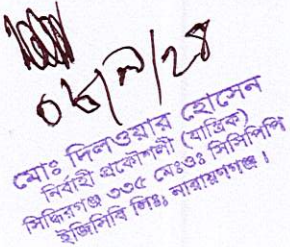 ০৮/৯/২৪
মোঃ দিলওয়ার হোসেন
নির্বাহী প্রকৌশলী (যান্ত্রিক)
সিদ্ধিরগঞ্জ ৩৩৫ মেঃওঃ সিসিপিপি
ইজিসিবি লিঃ, নারায়ণগঞ্জ।